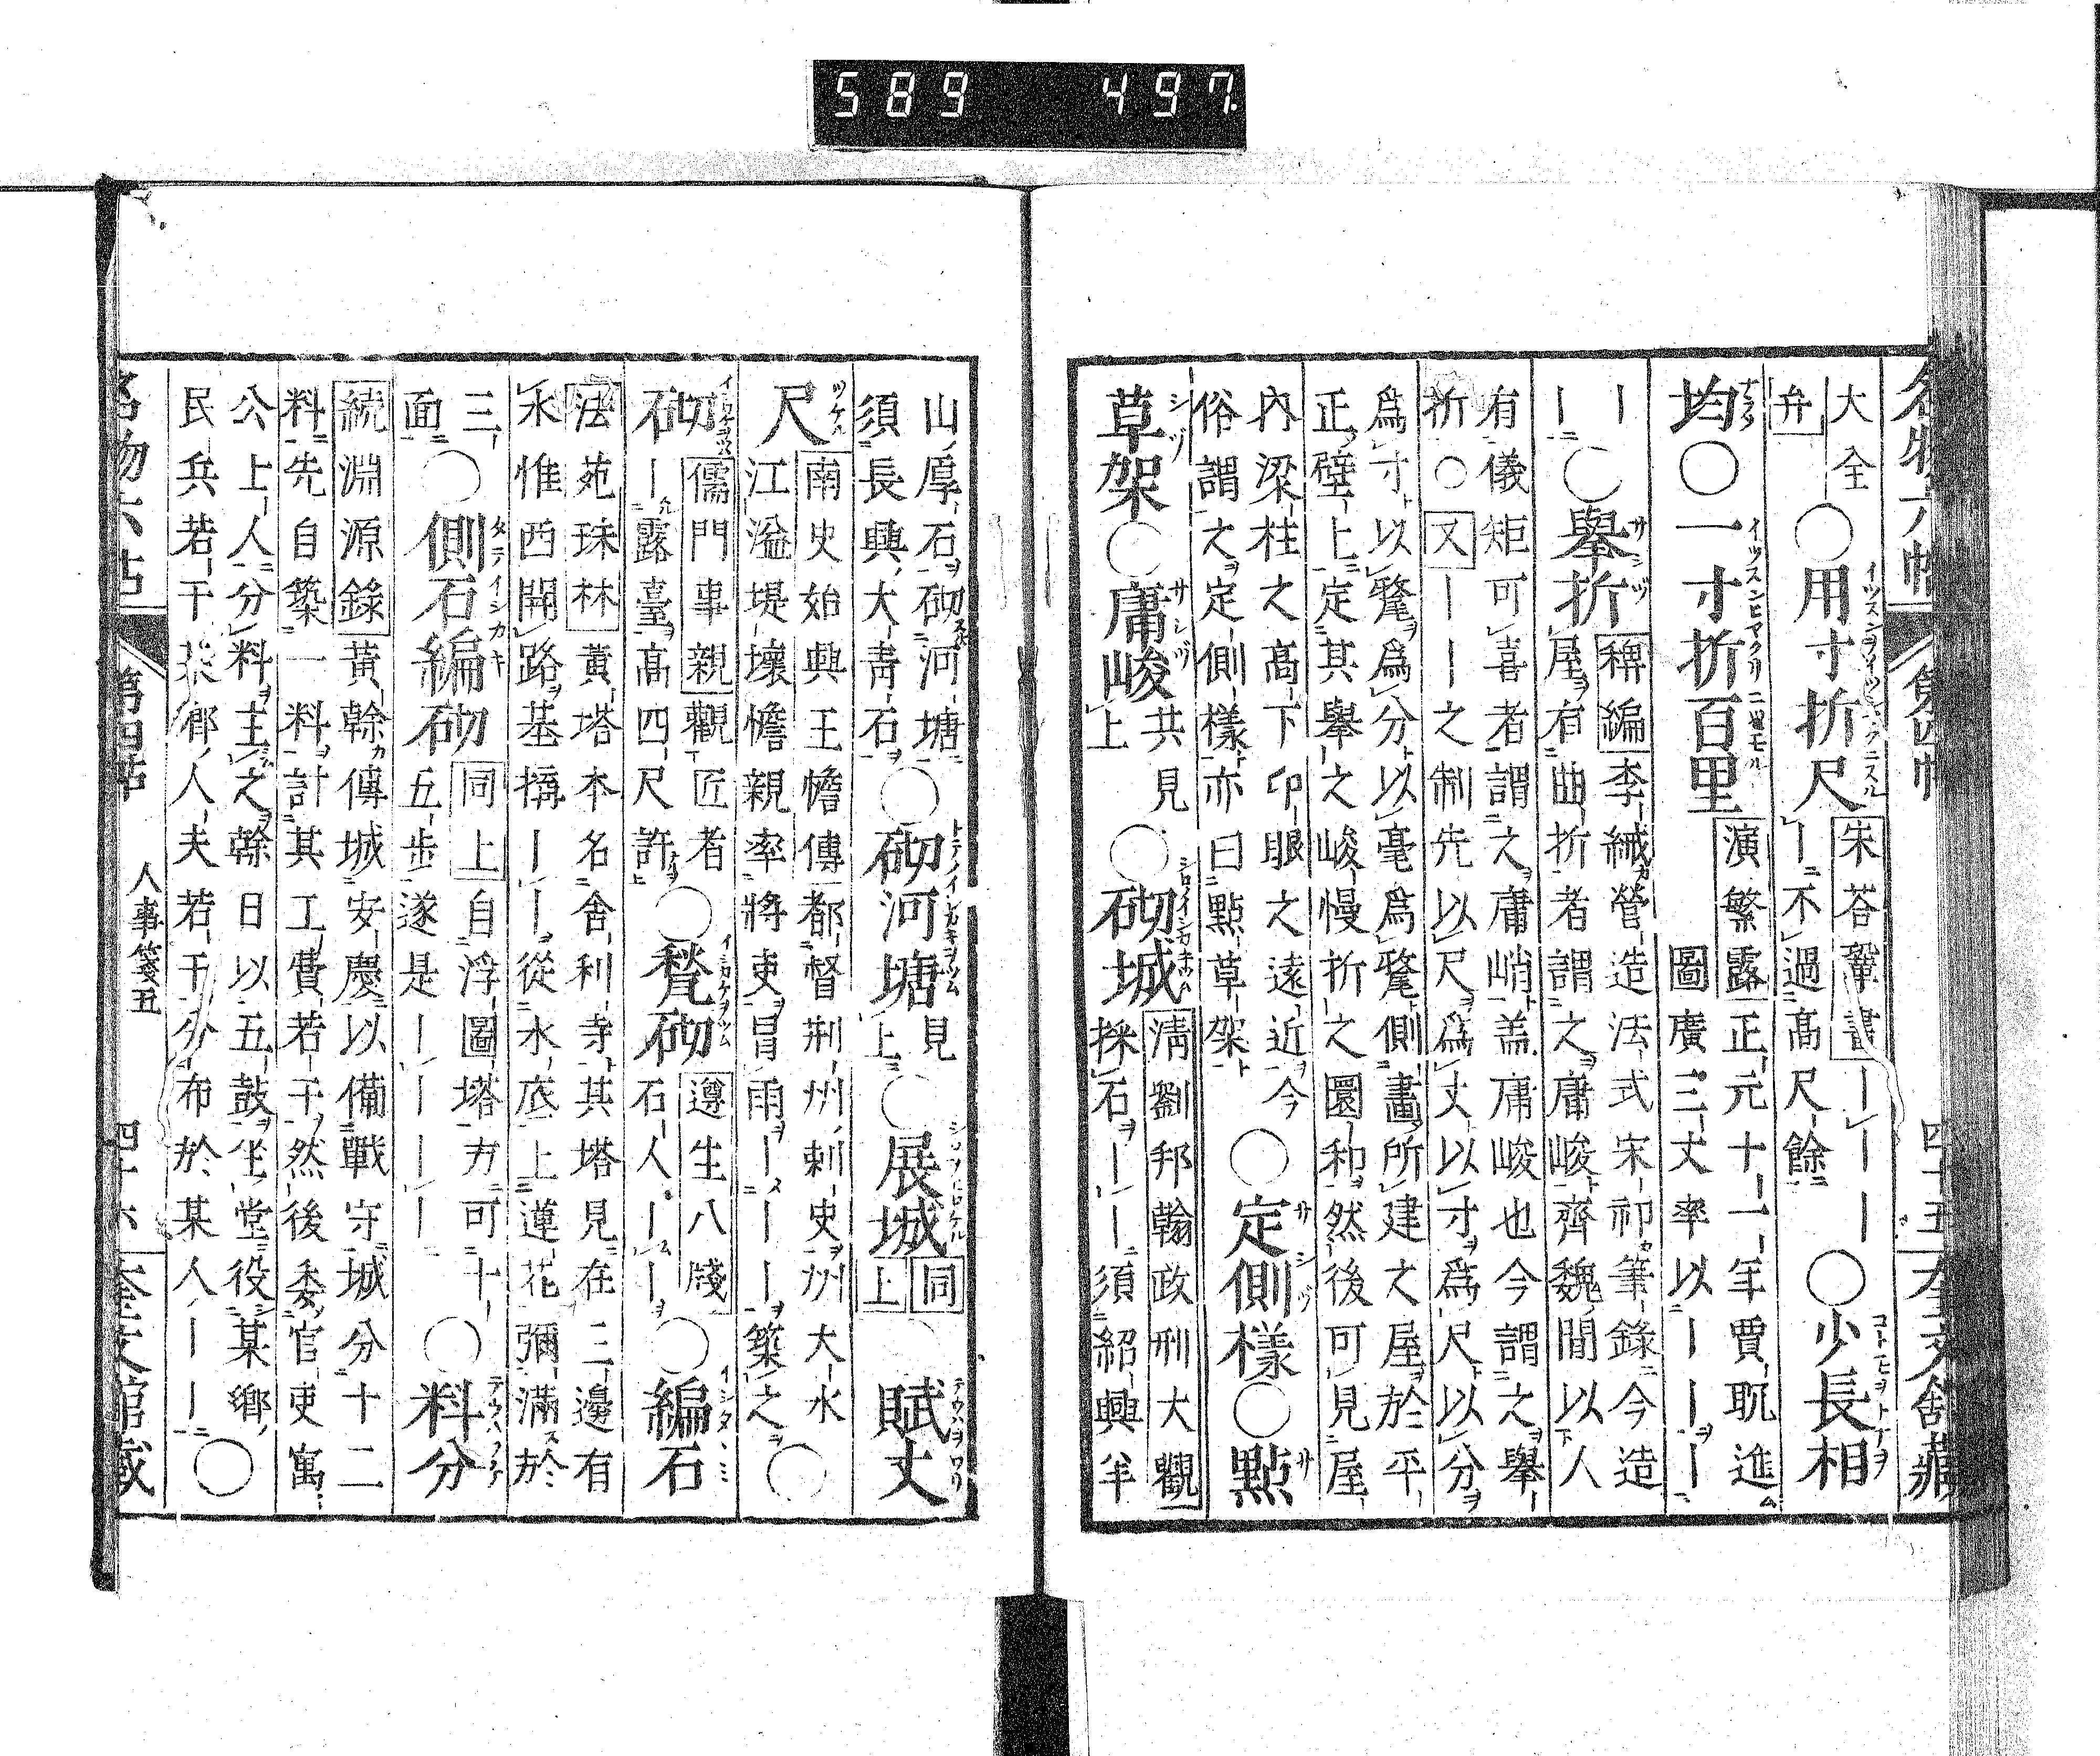 589 497
名物六帖 第四帖 四十五 奎文舘藏
大全
弁 ○用寸折尺 朱荅鞏書｜｜｜
｜不過高尺餘 ○少長相
均○一寸折百里 演繁露正元十一年賈耽進
圖廣三丈率以｜｜｜
｜
｜○擧折 稗編李緘營造法式宋祁筆録今造
屋有曲折者謂之庸峻齊魏間以人
有儀矩可喜者謂之庸峭盖庸峻也今謂之擧
折○又｜｜之制先以尺爲丈以寸爲尺以分
爲寸以釐爲分以毫爲釐側畫所建之屋於平
正壁上定其擧之峻慢折之圜和然後可見屋
内梁柱之高下卯眼之遠近今
俗謂之定側樣亦曰點草架 ○定側樣○點
草架○庸峻 共見
上 ○砌城 淸劉邦翰政刑大觀
採石｜｜須紹興羊
山厚石砌河塘
須長興大青石 ○砌河塘 見
上 ○展城 同
上 ○賦丈
尺 南史始興王憺傳都督荆州刺史州大水
江溢堤壞憺親率將吏冒雨｜｜築之 ○
砌
石 儒門事親觀匠者
｜露臺高四尺許 ○甃砌 遵生八牋
石人｜｜ ○編石
法苑珠林黄塔本名舍利寺其塔見在三邊有
水惟西開路基搆｜｜從水底上蓮花彌滿於
三
面 ○側石編砌 同上自浮圖塔方可十
五步遂是｜｜｜ ○料分
続淵源錄黃幹傳城安慶以備戰守城分十二
料先自築一料計其工費若干然後委官吏寓
公上人分料主之幹日以五鼓坐堂役某鄉
民兵若干某鄉人夫若干分布於某人｜｜ ○
名物六帖 第四帖 人事箋五 四十六 奎文館藏